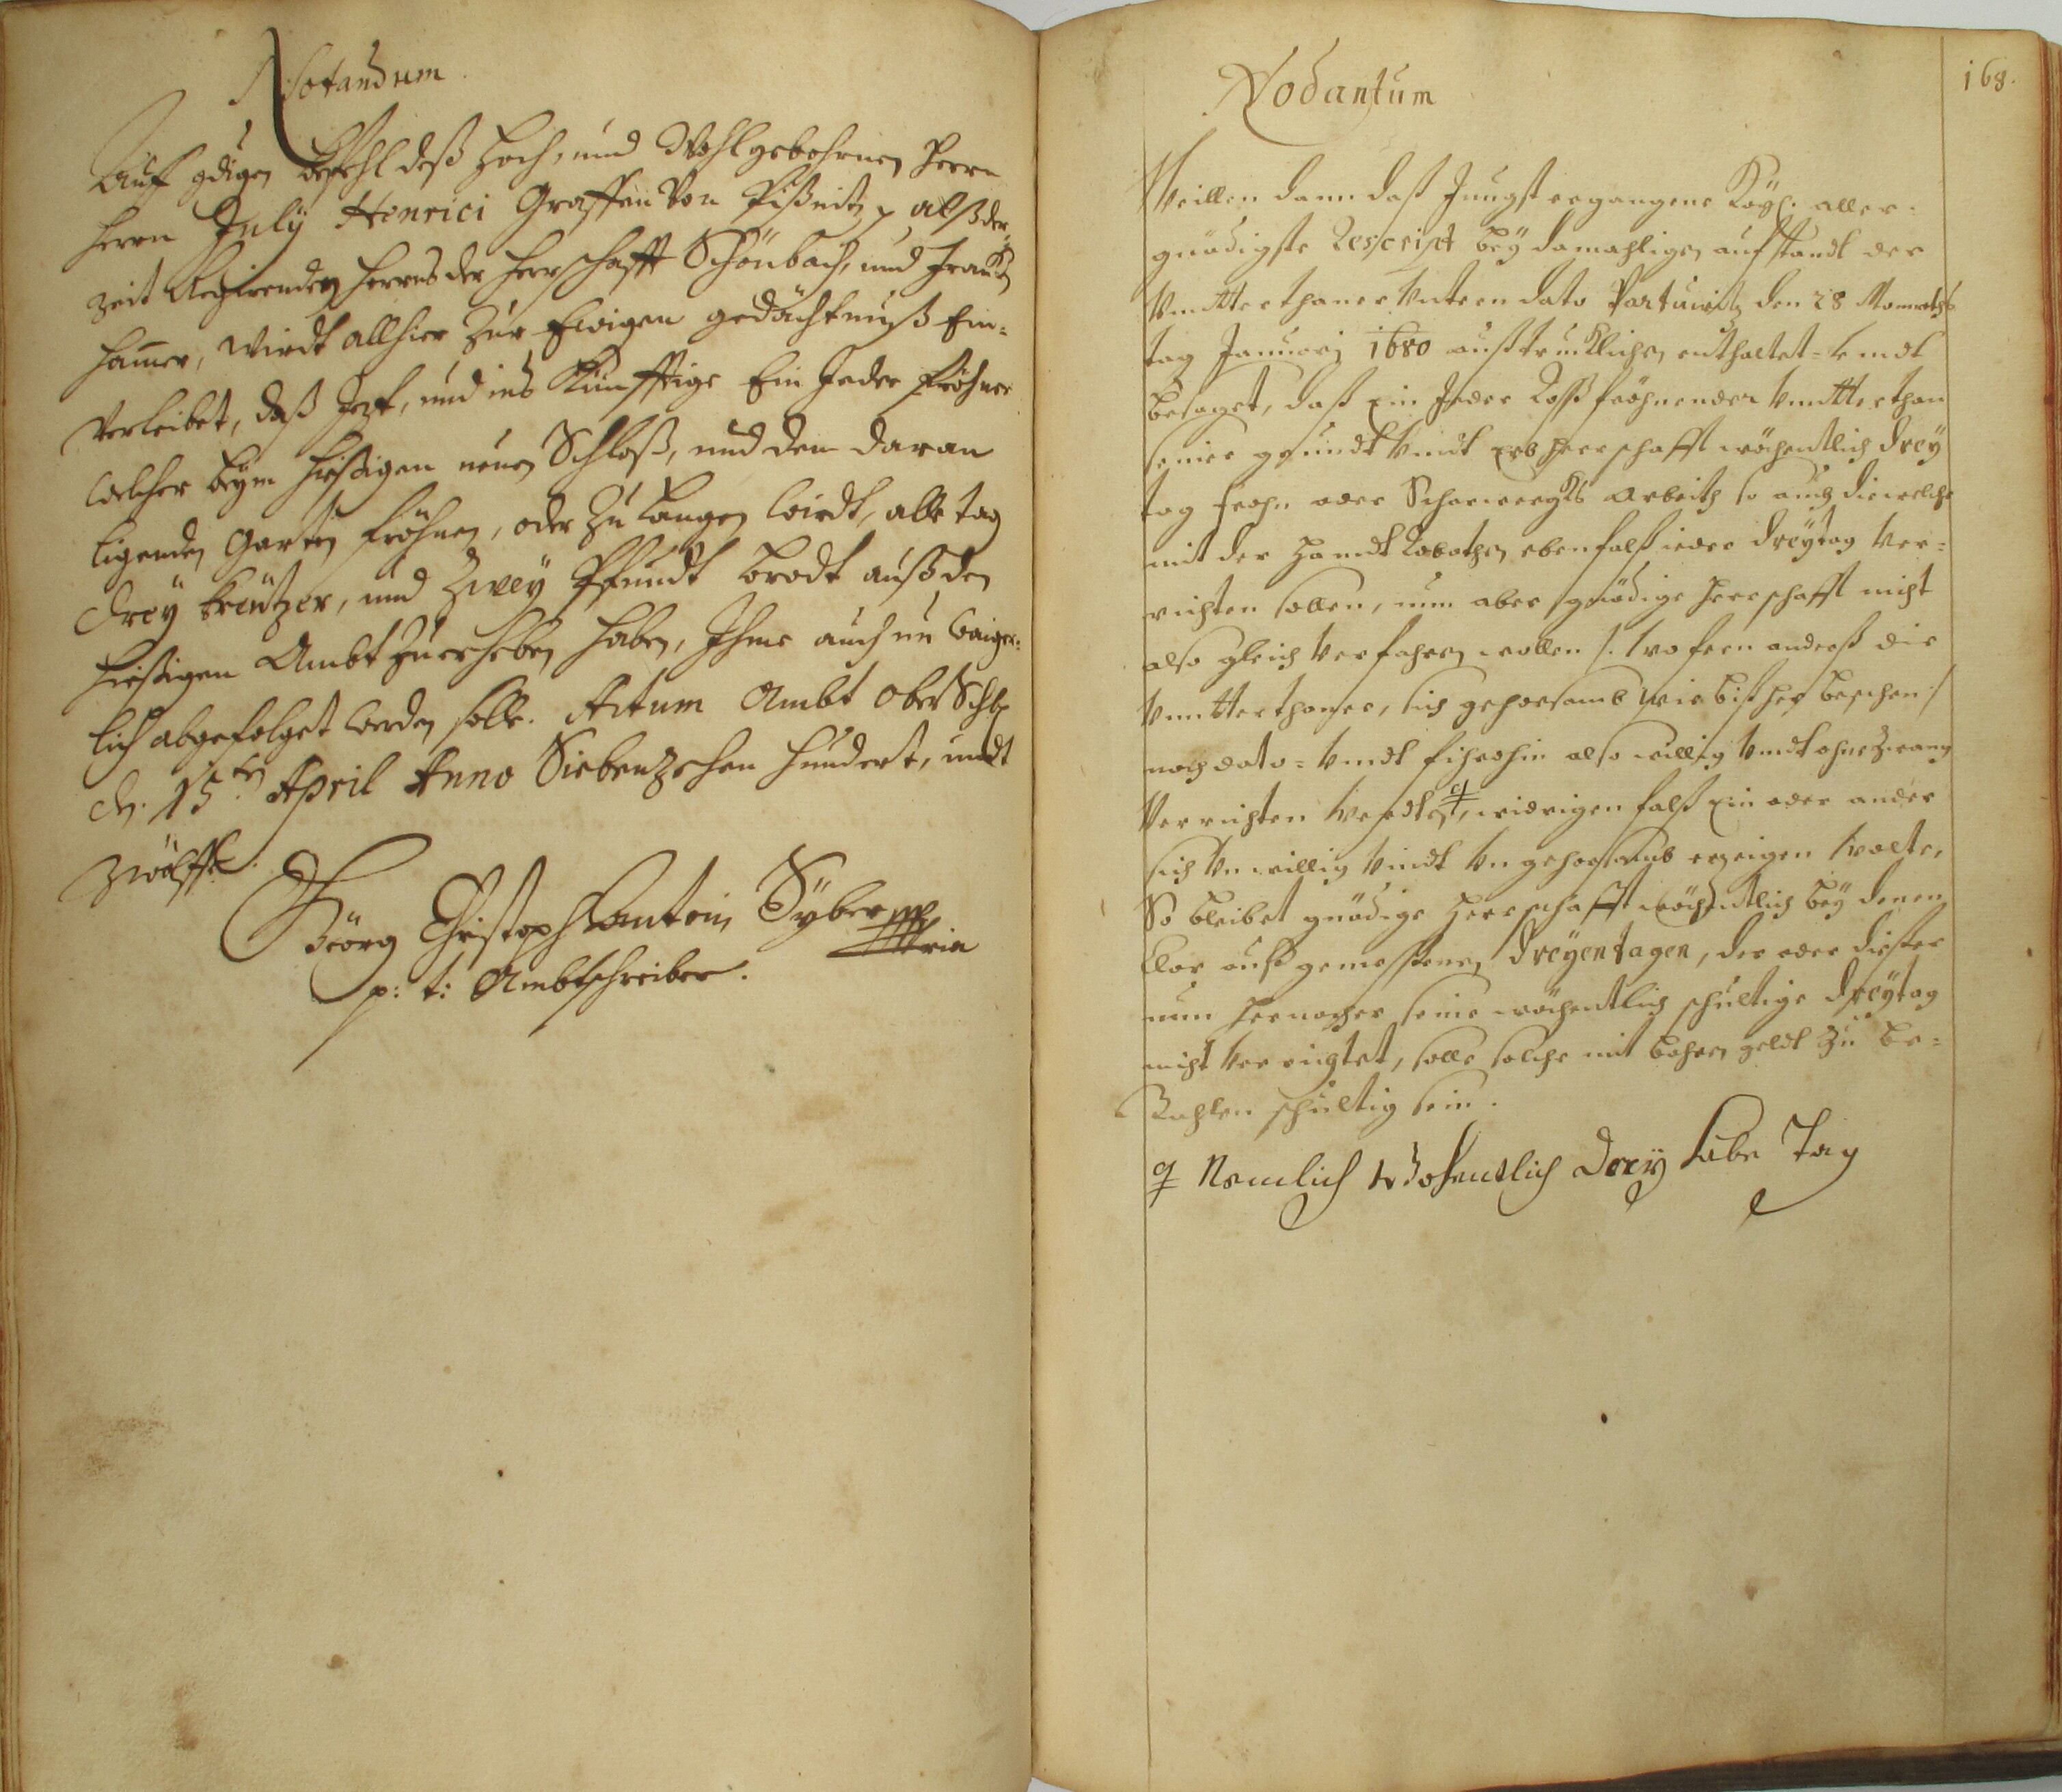 Notandum
Auf gdigen Befehl deß Hoch, und Wohlgebohrnen Herrn
Herrn July Henrici Graffen Von Pißnitz p alß der
zeit Regirenden Herrns der Herrschafft Schönbach, und Frauß
hamer, wirdt allhier Zur Ewigen gedächtnuß Ein=
Verleibet, daß Jezt, und ins Künfftige Ein Jeder Fröhner
welcher beym hießigen neuen Schloß, und dem daran
ligenden Garten fröhnen, oder Zu langen wirdt, alle tag
drey Kreützer, und Zwey Pfundt brodt auß den
hießigen Ambt Zu erheben haben, Ihme auch un waiger=
lich abgefolget werden solle. Actum Ambt Ober Schb
den 15ten April Anno Siebenzehen hundert, undt
zwölff.
Geörg Christoph Anton Syber mppria
p: t: Ambtschreiber.
168.
Nodantum
Weillen dann daß Jungst ergangene Kayl. aller=
gnädigste Rescript bey damahligen aufstandt der
Vnntterthaner Vntern dato Parduwitz den 28 Monaths
tag Januarj 1680 außtrucklichen enthaltet= Vndt
besaget, daß ein Jeder Roß fröhnender Vnntterthan
seiner grundt Vndt erb herrschafft wöchentlich drey
tag frohn oder Scharwergks Arbeith so auch die welche
mit der Handt Robothen ebenfalß ieder dreytag Ver=
richten sollen, nun aber gnädige herrschafft nicht
also gleich Verfahren wollen /: wo fern anderß die
Vnntterthaner, sich gehorsamb wie bißher beschehen :/
nach dato= Vndt fihrohin also willig Vndt ohne Zwang
Verrichten werdten, widrigen falß ein oder ander
sich Vnwillig Vndt Vngehorsamb erzeigen wolte,
So bleibet gnädige Herrschafft wöchentlich bey denen
klar auß gemessenen dreyen tagen, der oder dießer
nun hernacher seine wöchentlich schultige dreytag
nicht Verrichtet, solle solche mit bahren geldt Zu be=
Zahlen schultig sein.
Nemlich Wochentlich drey halbe Tag